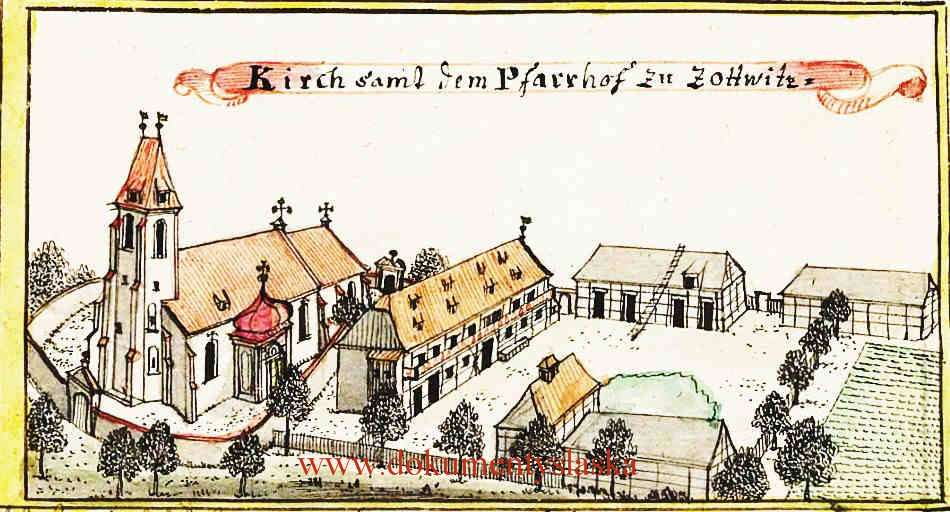 Kirch samt dem Pfarrhof zu Zottwitz
www.dokumentyslaska